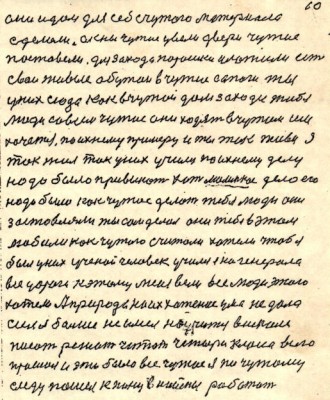 60
они и дом для себя с чутого материала
сделали. окни чутие двери чутие
поставели. для захода порошки и плотили
свои живые обутои в чутие сапоги ты
уних сюда как в чутой дом заходи тебя
люди совсем чутие они ходят в чутом им
хочатся, по ихнему примеру и ты так живи я
так жил так уних учился по ихнему делу
надо было привыкат хот маминое дело его
надо было как чутое делат тебя люди они
заставляли ты сам делал они тебя в этом
любили как чутого считали хатели чтоб я
был уних ученой человек учился на генерала
все дороги к этому меня вели все люди этого
хатели А природа на их хатение ума не дала
сил я болше не имел на учиту в школе
писат решат читат четыри класа всего
прошол и это было все чутжое я по чутому
следу пошел к пану в найми работат